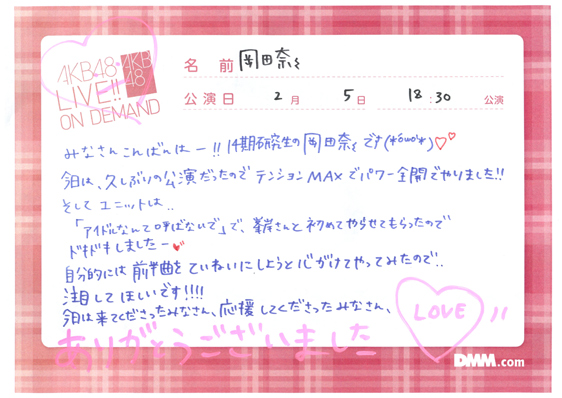 AKB48
LIVE!!
ON DEMAND
AKB
48
名前 岡田奈々
公演日 2月 5日 18:30 公演
みなさんこんばんはー!! 14期研究生の岡田奈々です(*'ω'*)♡♡
今日は、久しぶりの公演だったのでテンションMAXでパワー全開でやりました!!
そしてユニットは..
「アイドルなんて呼ばないで」で、峯岸さんと初めてやらせてもらったので
ドキドキしましたー♥
自分的には前半曲をていねいにしようと心がけてやってみたので..
注目してほしいです!!!!
今日は来てくださったみなさん、応援してくださったみなさん、
ありがとうございました!!
LOVE
DMM.com